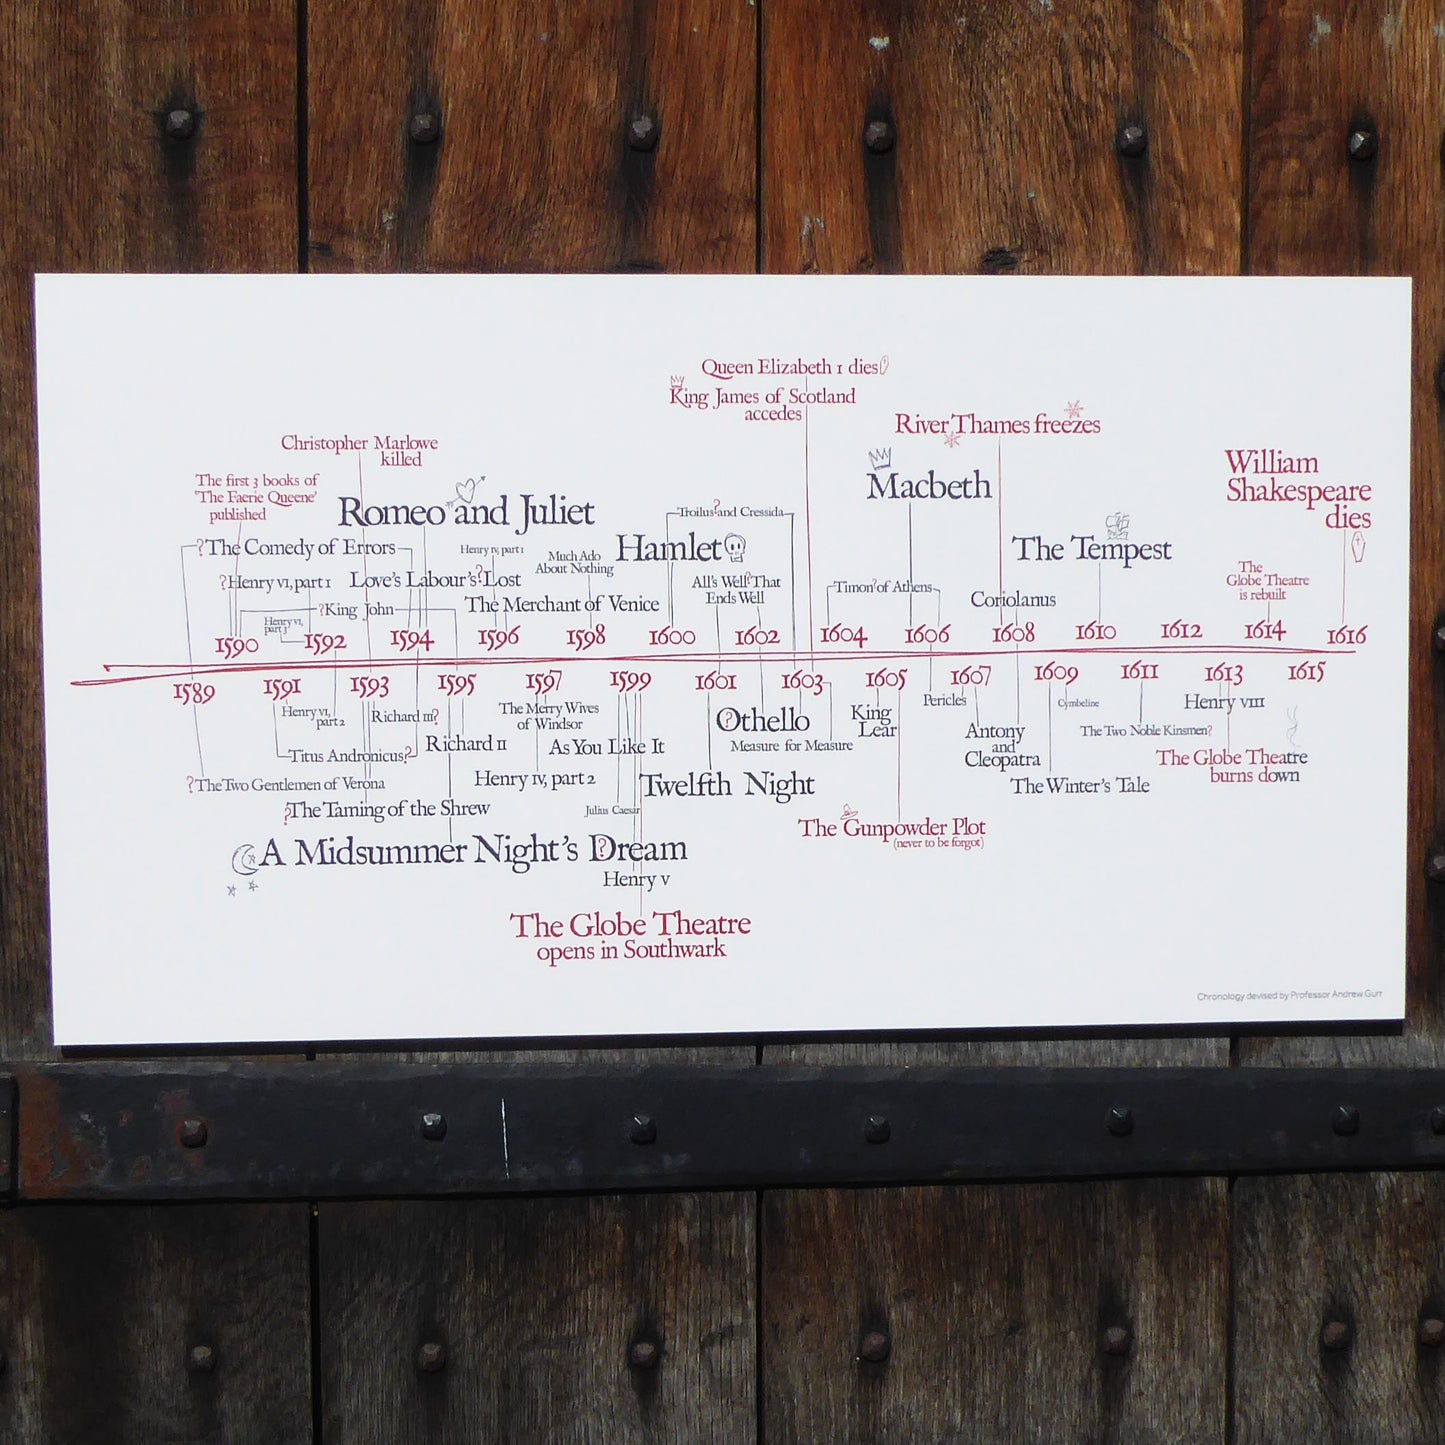 Queen Elizabeth I dies
King James of Scotland
accedes
River Thames freezes
Christopher Marlowe
killed
William
Shakespeare
dies
The first 3 books of
'The Faerie Queene'
published
Macbeth
Romeo and Juliet
Troilus? and Cressida
?The Comedy of Errors
Henry IV, part 1
Much Ado
About Nothing
Hamlet
The Tempest
The
Globe Theatre
is rebuilt
?Henry VI, part 1
Love's Labour's? Lost
All's Well? That
Ends Well
Timon? of Athens
Coriolanus
?King John
The Merchant of Venice
Henry VI,
part 3
1590 1592 1594 1596 1598 1600 1602 1604 1606 1608 1610 1612 1614 1616
1589 1591 1593 1595 1597 1599 1601 1603 1605 1607 1609 1611 1613 1615
Henry VI,
part 2
Richard III?
The Merry Wives
of Windsor
Othello
King
Lear
Pericles
Cymbeline
Henry VIII
Titus Andronicus?
Richard II
As You Like It
Measure for Measure
Antony
and
Cleopatra
The Two Noble Kinsmen?
The Globe Theatre
burns down
?The Two Gentlemen of Verona
Henry IV, part 2
Twelfth Night
The Winter's Tale
?The Taming of the Shrew
Julius Caesar
The Gunpowder Plot
(never to be forgot)
A Midsummer Night's Dream
Henry V
The Globe Theatre
opens in Southwark
Chronology devised by Professor Andrew Gurr